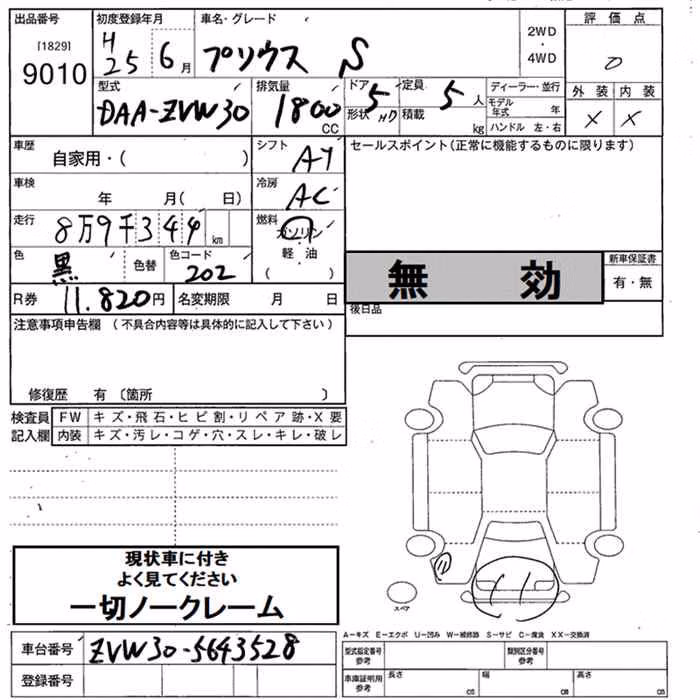 出品番号 初度登録年月 車名・グレード 2WD・4WD 評価点
[1829]
9010 H25 6月 プリウス S 0
型式 排気量 ドア 定員 ディーラー・並行 外装 内装
DAA-ZVW30 1800CC 5 5人 モデル年式 年 X X
形状 HD 積載 kg ハンドル 左・右
車歴 自家用・( ) シフト AT セールスポイント(正常に機能するものに限ります)
車検 年 月( 日) 冷房 AC
走行 8万9千344km 燃料 ガソリン
軽油
( )
色 黒 色替 色コード 202
無効 新車保証書
有・無
R券 11.820円 名変期限 月 日 後日品
注意事項申告欄 (不具合内容等は具体的に記入して下さい)
修復歴 有 〔箇所 〕
検査員 FW キズ・飛石・ヒビ割・リペア跡・X要
記入欄 内装 キズ・汚レ・コゲ・穴・スレ・キレ・破レ
現状車に付き
よく見てください
一切ノークレーム
スペア
A-キズ E-エクボ U-凹み W-補修跡 S-サビ C-腐食 XX-交換済
車台番号 ZVW30-5643528 型式指定番号 参考 類別区分番号 参考
登録番号 車庫証明用 参考 長さ cm 幅 cm 高さ cm